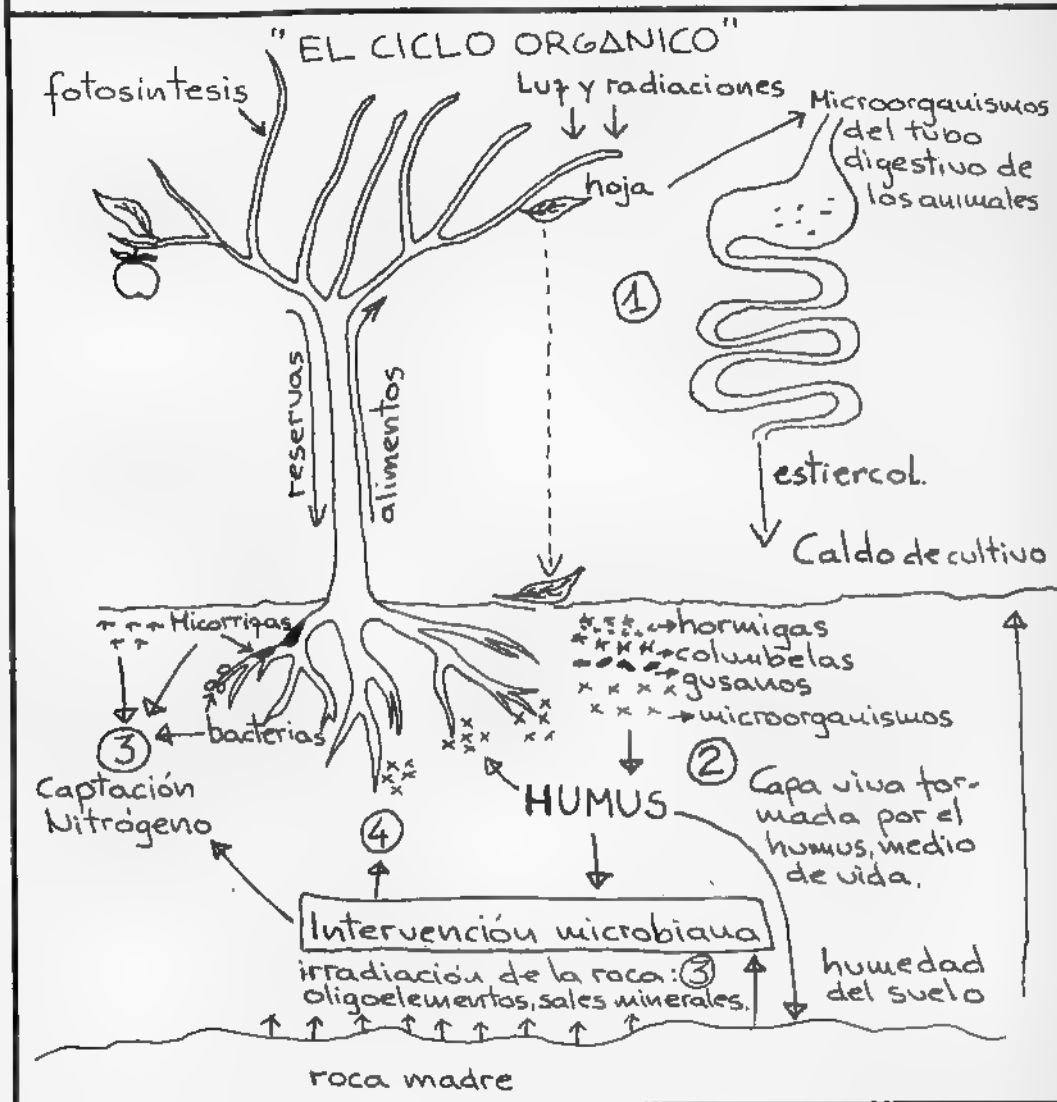 "EL CICLO ORGANICO"
fotosíntesis
Luz y radiaciones
hoja
Microorganismos
del tubo
digestivo de
los animales
①
reservas
alimentos
estiercol.
Caldo de cultivo
Micorrizas
bacterias
③
Captación
Nitrógeno
④
hormigas
columbelas
gusanos
microorganismos
②
HUMUS
Capa viva for-
mada por el
humus, medio
de vida.
Intervención microbiana
irradiación de la roca: ③
oligoelementos, sales minerales.
humedad
del suelo
roca madre